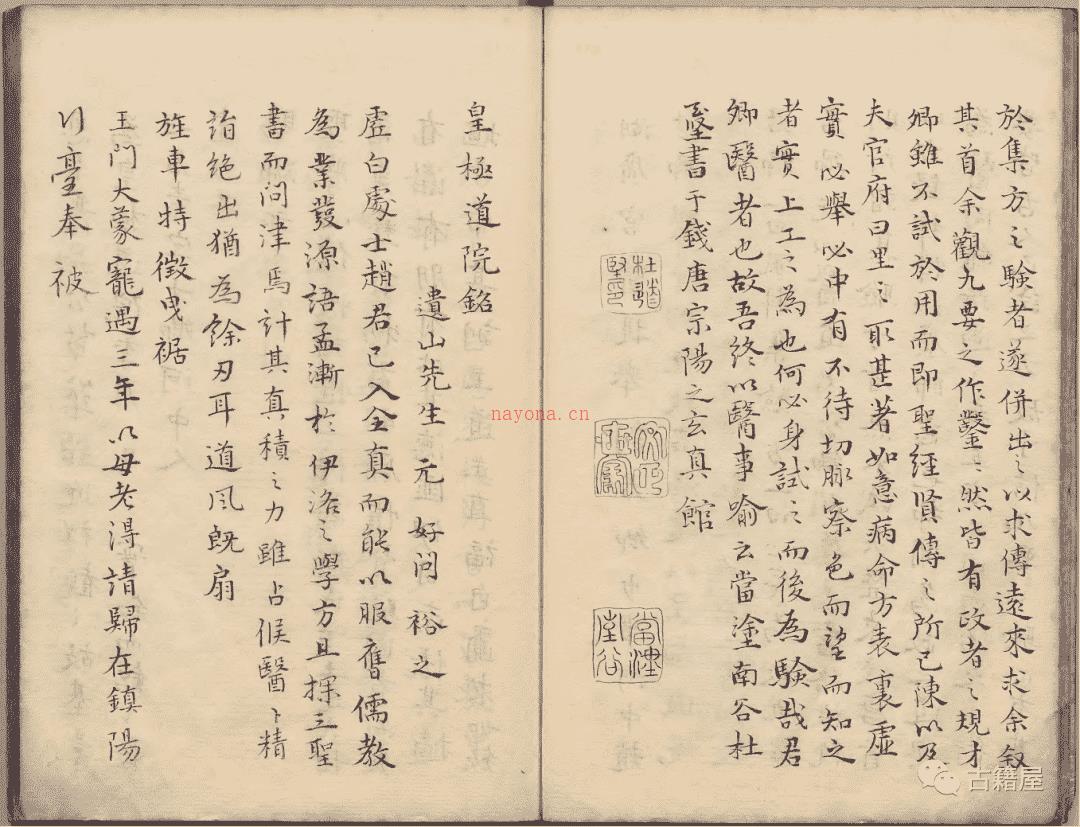 於集方之驗者遂併出之以求傳遠來求余叙
其首余觀九要之作鑿〻然皆有政者之規才
卿雖不試於用而即聖經賢傳之所已陳以及
夫官府曰里之耴甚著如意病命方表裏虛
實必舉必中有不待切脉察色而望而知之
者實上工之為也何必身試之而後為驗哉君
卿醫者也故吾終以醫事喻云當塗南谷杜
道堅書于錢唐宗陽之玄真館
杜道
堅印
皇極道院銘
遺山先生元好问裕之
虛白處士趙君已入全真而能以服膺儒教
為業發源語孟漸於伊洛之學方且探三聖
書而问津焉計其真積之力雖占候醫卜精
詣絶出猶為餘刃耳道风既扇
旌車特徵曳裾
王门大蒙寵遇三年以母老淂請歸在鎮陽
行臺奉被
nayona.cn
古籍屋